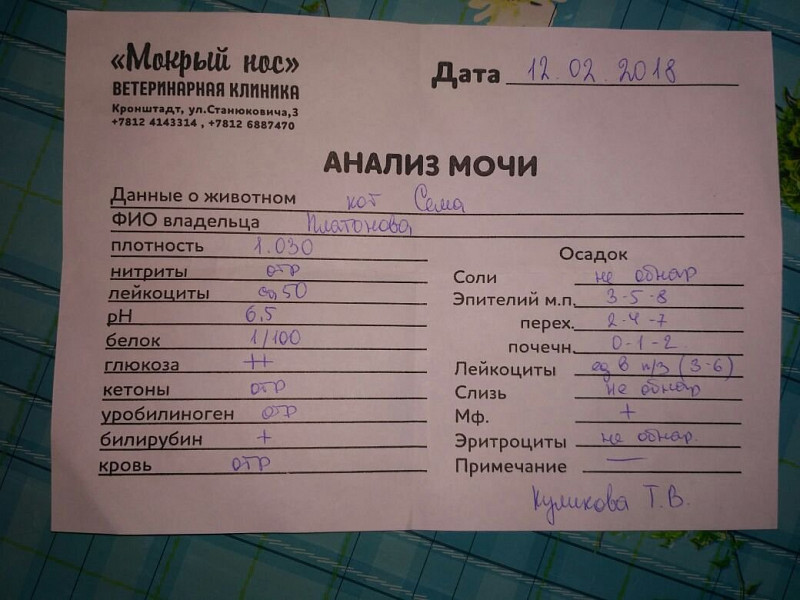 «Мокрый нос»
ВЕТЕРИНАРНАЯ КЛИНИКА
Кронштадт, ул.Станюковича,3
+7812 4143314 , +7812 6887470
Дата 12.02.2018
АНАЛИЗ МОЧИ
Данные о животном кот Сема
ФИО владельца Платонова
плотность 1.030
нитриты отр
лейкоциты 50
pH 6,5
белок 1/100
глюкоза ++
кетоны отр
уробилиноген отр
билирубин +
кровь отр
Осадок
Соли не обнар
Эпителий м.п. 3-5-8
перех. 2-4-7
почечн. 0-1-2
Лейкоциты ед в п/з (3-6)
Слизь не обнар
Мф. +
Эритроциты не обнар.
Примечание —
Куликова Т.В.